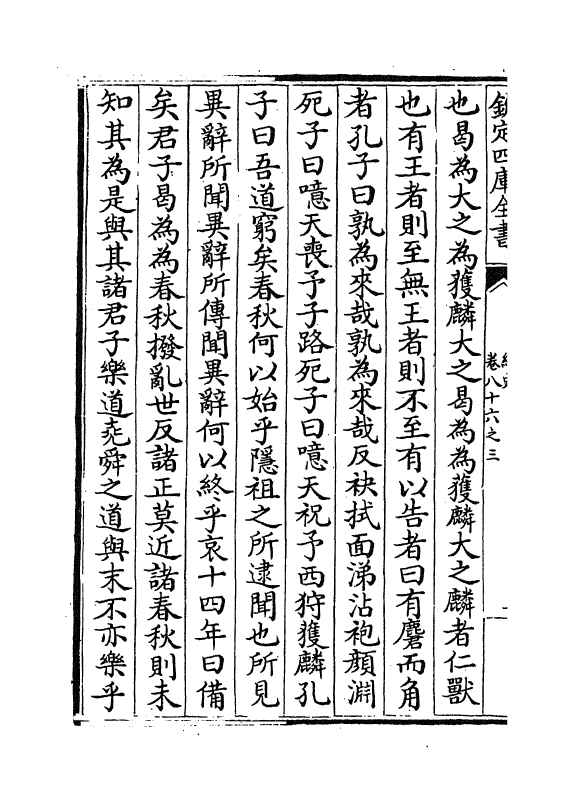 欽定四庫全書
卷八十六之三
也曷為大之為獲麟大之曷為為獲麟大之麟者仁獸
也有王者則至無王者則不至有以告者曰有麏而角
者孔子曰孰為來哉孰為來哉反袂拭面涕沾袍顔淵
死子曰噫天喪予子路死子曰噫天祝予西狩獲麟孔
子曰吾道窮矣春秋何以始乎隱祖之所逮聞也所見
異辭所聞異辭所傳聞異辭何以終乎哀十四年曰備
矣君子曷為為春秋撥亂世反諸正莫近諸春秋則未
知其為是與其諸君子樂道堯舜之道與末不亦樂乎